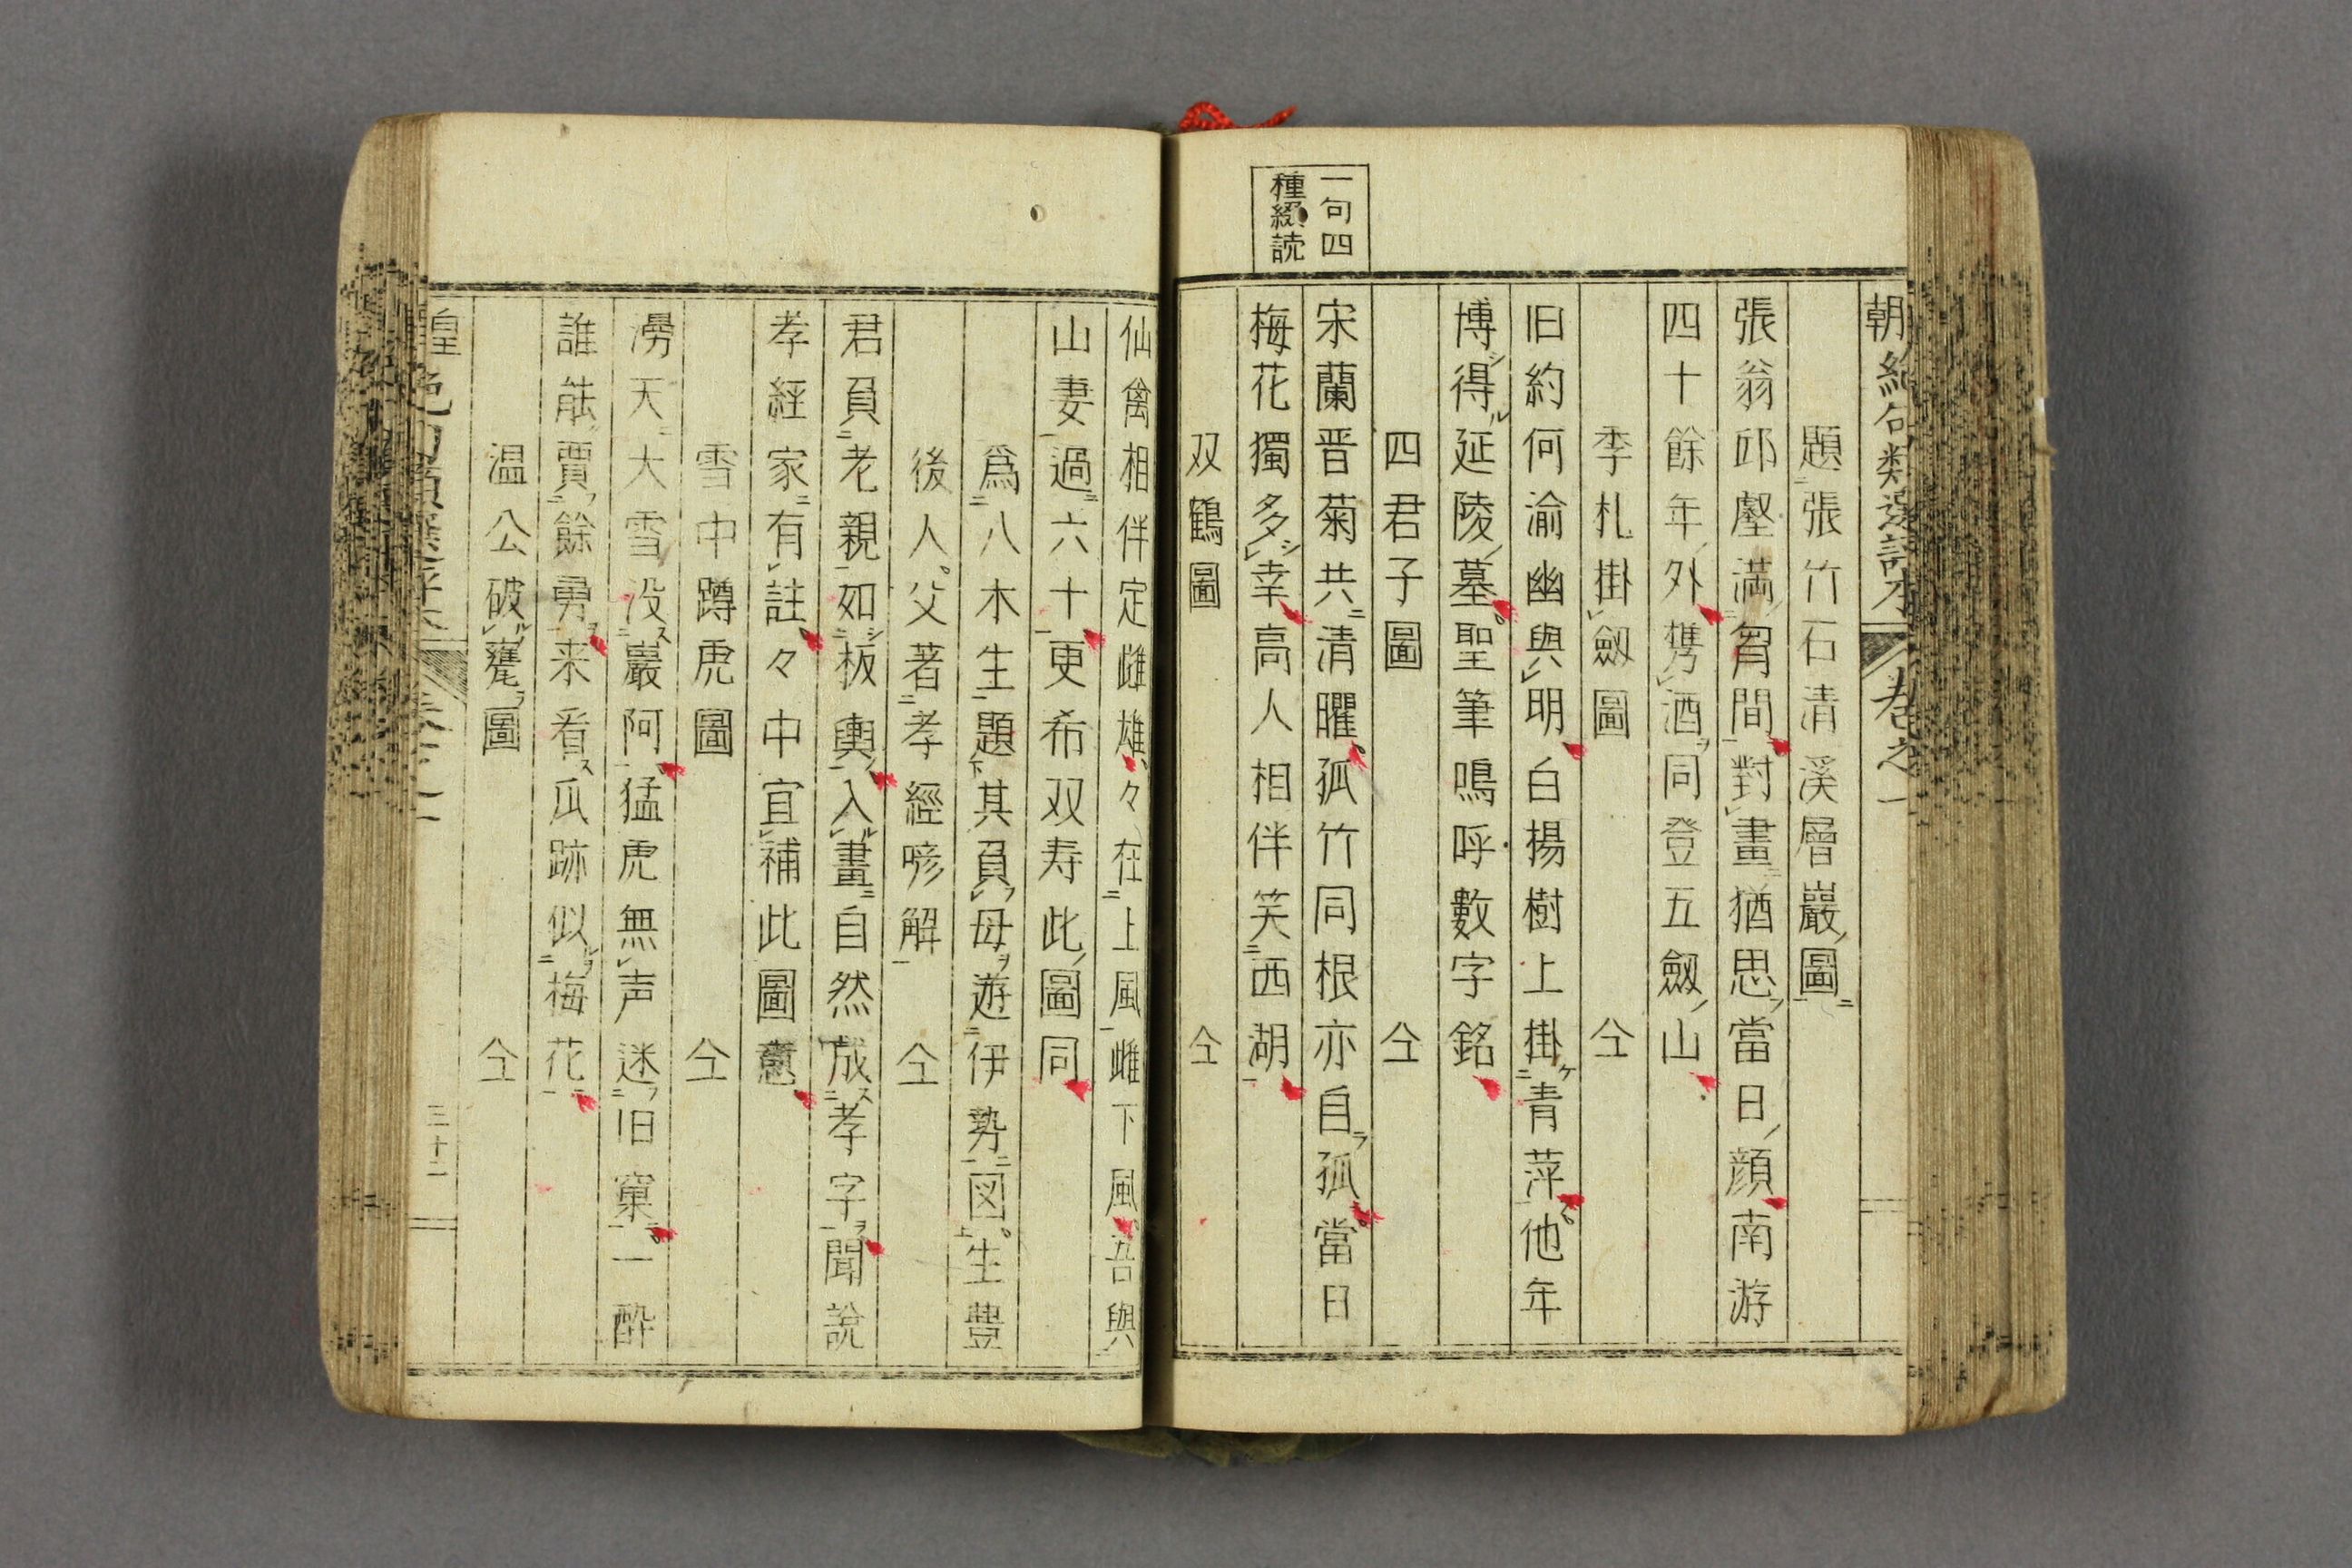 一句四
種綴読
朝絶句類選評本 卷之一
題張竹石清溪層巖圖
張翁邱壑満匈間對畫猶思當日顔南游
四十餘年外携酒同登五劔山
季札掛劔圖 仝
旧約何渝幽與明白楊樹上掛青萍他年
博得延陵墓聖筆鳴呼數字銘
四君子圖 仝
宋蘭晋菊共清曜孤竹同根亦自孤當日
梅花獨多幸高人相伴笑西湖
双鶴圖 仝
仙禽相伴定雌雄々在上風雌下風吾與
山妻過六十更希双寿此圖同
爲八木生題其負母遊伊勢図生豊
後人父著孝經喭解 仝
君負老親如板輿入畫自然成孝字聞說
孝經家有註々中宜補此圖意
雪中蹲虎圖 仝
澇天大雪没巖阿猛虎無声迷旧窠一酔
誰能賈餘勇来看瓜跡似梅花
温公破甕圖 仝
三十二